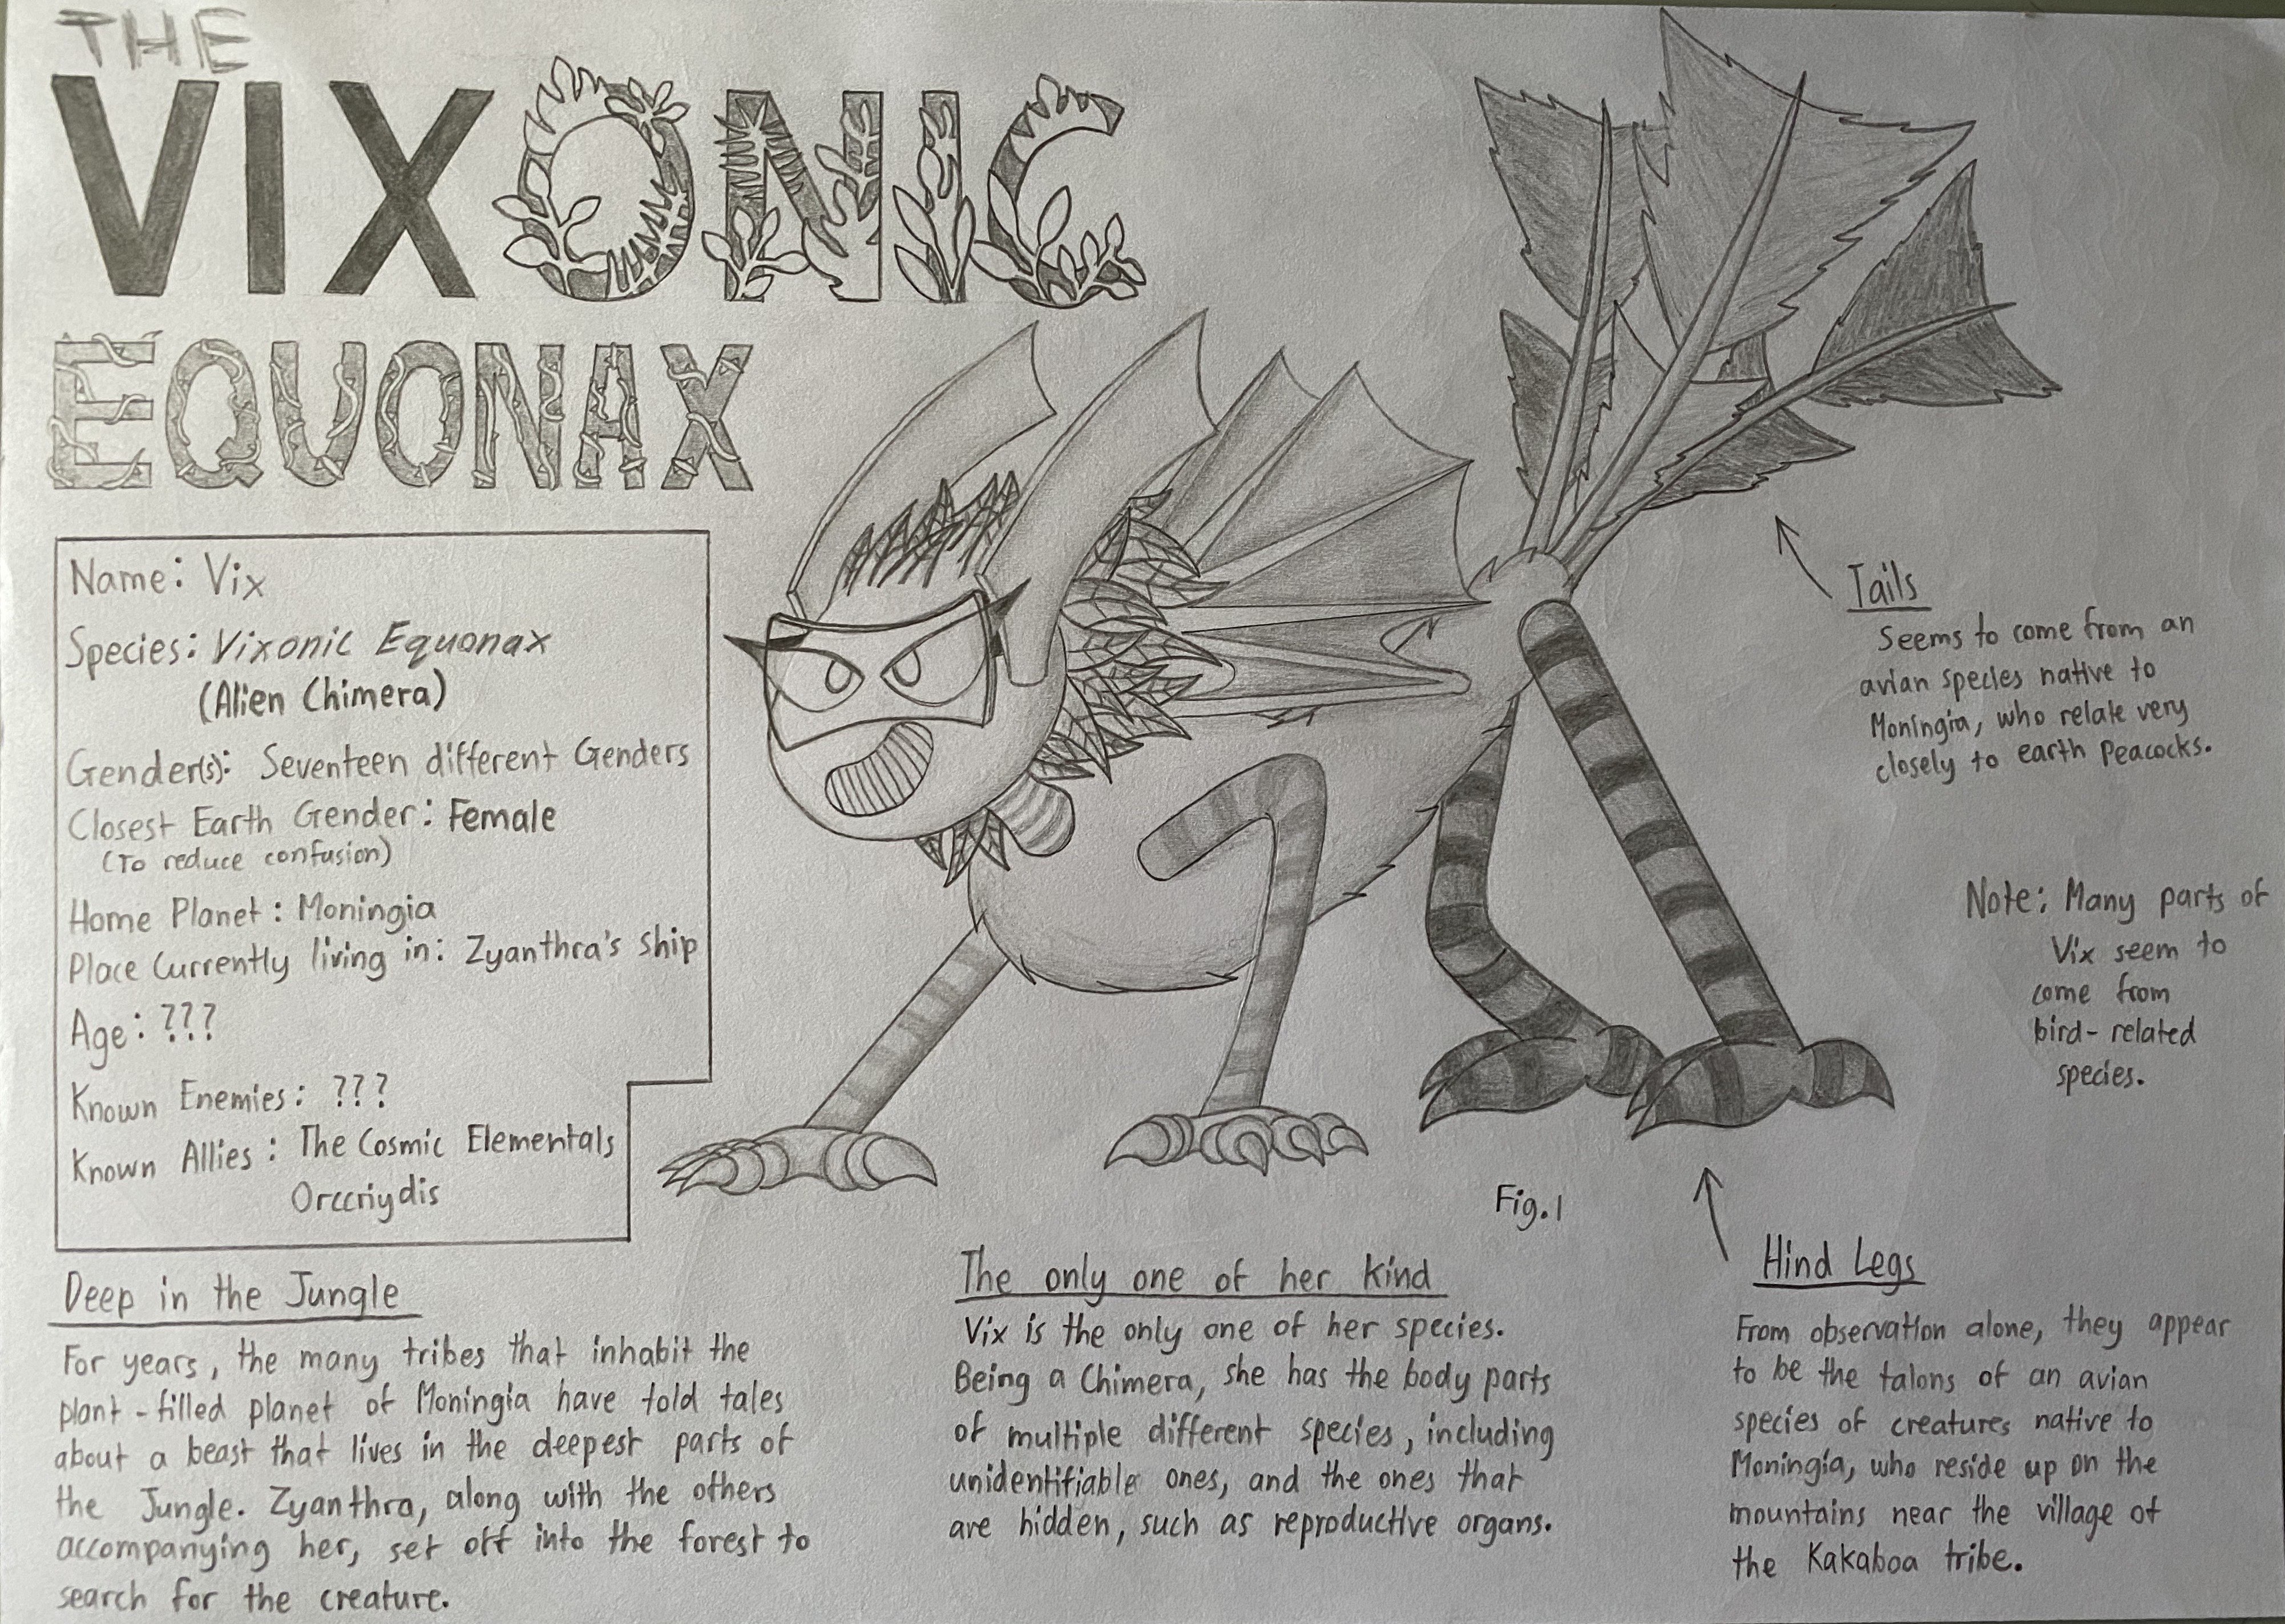 THE
VIXONIC
EQUONAX
Name: Vix
Species: Vixonic Equonax
(Alien Chimera)
Gender(s): Seventeen different Genders
Closest Earth Gender: Female
(To reduce confusion)
Home Planet: Moningia
Place Currently living in: Zyanthra's Ship
Age: ???
Known Enemies: ???
Known Allies: The Cosmic Elementals
Orccriydis
Tails
Seems to come from an
avian species native to
Moningia, who relate very
closely to earth Peacocks.
Note: Many parts of
Vix seem to
come from
bird-related
species.
Fig.1
Deep in the Jungle
For years, the many tribes that inhabit the
plant-filled planet of Moningia have told tales
about a beast that lives in the deepest parts of
the Jungle. Zyanthra, along with the others
accompanying her, set off into the forest to
search for the creature.
The only one of her kind
Vix is the only one of her species.
Being a Chimera, she has the body parts
of multiple different species, including
unidentifiable ones, and the ones that
are hidden, such as reproductive organs.
Hind Legs
From observation alone, they appear
to be the talons of an avian
species of creatures native to
Moningia, who reside up on the
mountains near the village of
the Kakaboa tribe.